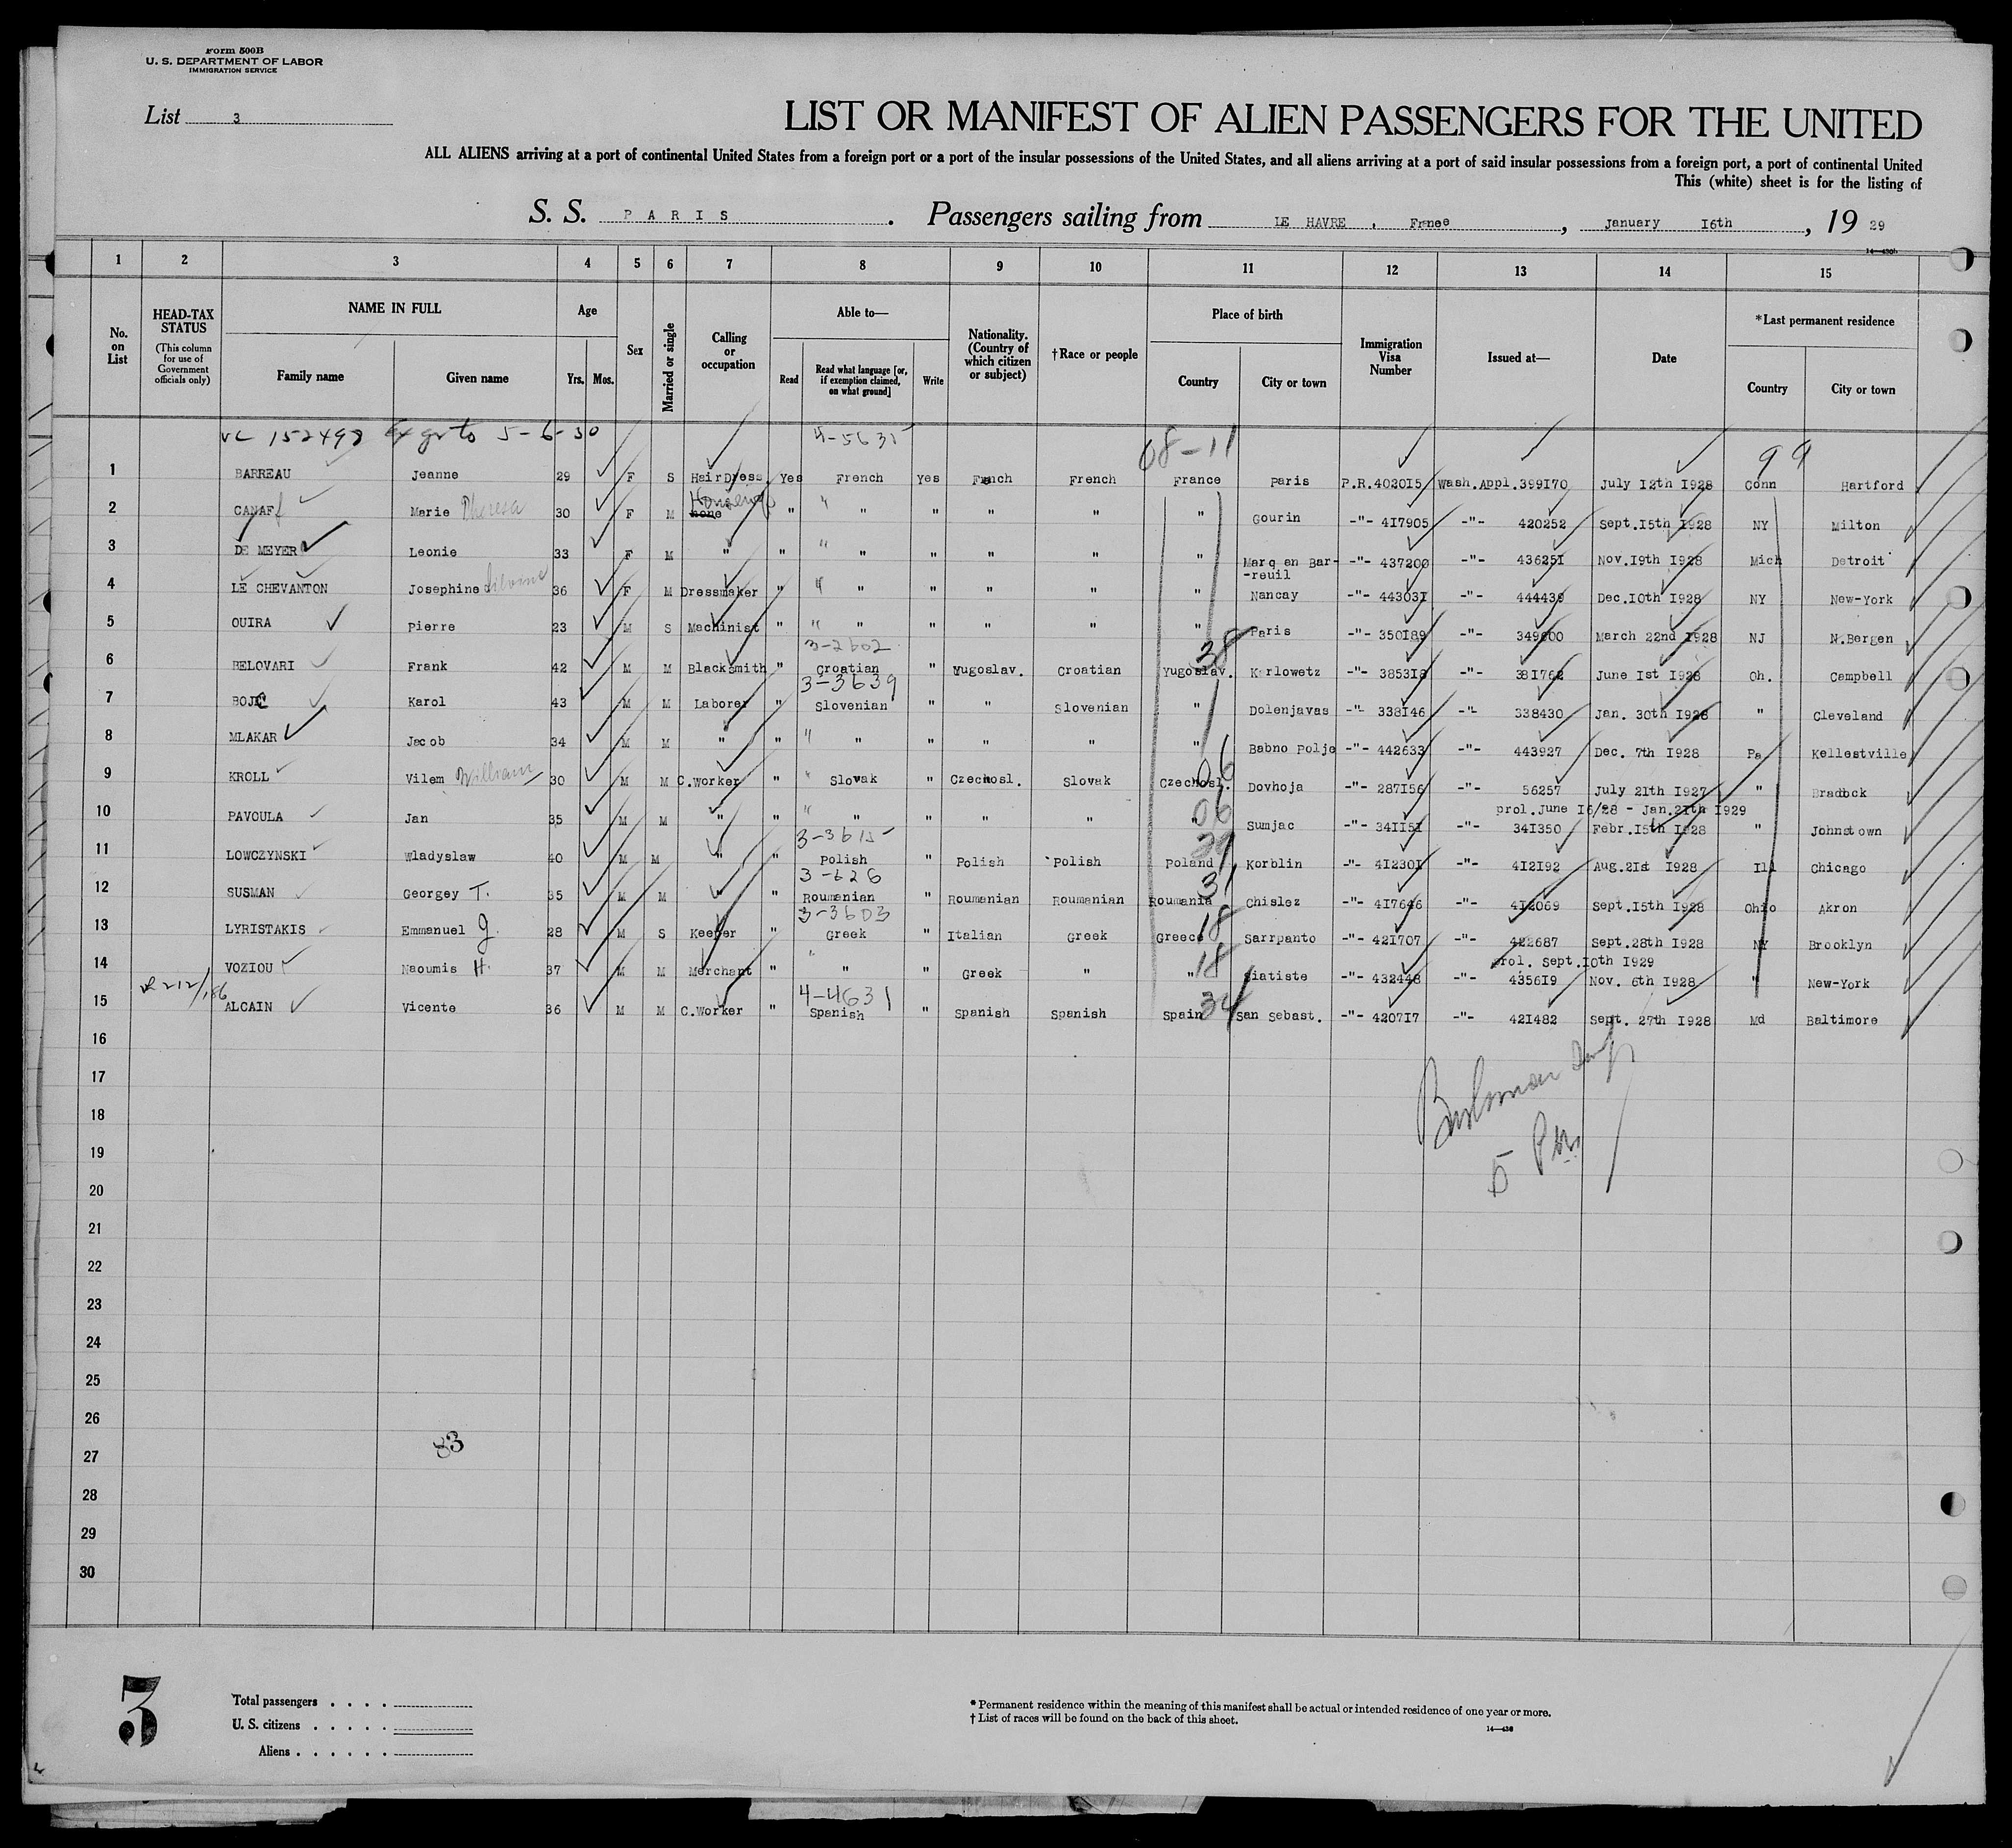 Form 500B
U. S. DEPARTMENT OF LABOR
IMMIGRATION SERVICE
List 3
LIST OR MANIFEST OF ALIEN PASSENGERS FOR THE UNITED
ALL ALIENS arriving at a port of continental United States from a foreign port or a port of the insular possessions of the United States, and all aliens arriving at a port of said insular possessions from a foreign port, a port of continental United
This (white) sheet is for the listing of
S. S. PARIS. Passengers sailing from LE HAVRE, Frnce, January I6th, 19 29
14—430b
1 2 3 4 5 6 7 8 9 10 11 12 13 14 15
No. on List
HEAD-TAX STATUS
(This column for use of Government officials only)
NAME IN FULL
Family name Given name
Age
Yrs. Mos.
Sex
Married or single
Calling or occupation
Able to—
Read
Read what language [or, if exemption claimed, on what ground]
Write
Nationality. (Country of which citizen or subject)
†Race or people
Place of birth
Country City or town
Immigration Visa Number
Issued at—
Date
*Last permanent residence
Country City or town
152498 5-6-30 4-5635 08-11 99
1 BARREAU Jeanne 29 F S HairDress. Yes French Yes French French France Paris P.R.402015 Wash.Appl.399170 July 12th I928 Conn Hartford
2 CANAFf Marie Theresa 30 F M none " " " " " " " Gourin -"- 4I7905 -"- 420252 Sept.I5th I928 NY Milton
3 DE MEYER Leonie 33 F M " " " " " " " " Marq en Bar--reuil -"- 437200 -"- 43625I Nov.I9th I928 Mich Detroit
4 LE CHEVANTON Josephine 36 F M Dressmaker " " " " " " " Nancay -"- 44303I -"- 444439 Dec.I0th I928 NY New-York
5 OUIRA Pierre 23 M S Machinist " " " " " " " Paris -"- 350I89 -"- 349600 March 22nd I928 NJ N.Bergen
3-2602 38
6 BELOVARI Frank 42 M M Blacksmith " Croatian " Yugoslav. Croatian Yugoslav. Karlowetz -"- 3853I8 -"- 38I762 June Ist I928 Oh. Campbell
3-3639
7 BOJC Karol 43 M M Laborer " Slovenian " " Slovenian " Dolenjavas -"- 338I46 -"- 338430 Jan. 30th I928 " Cleveland
8 MLAKAR Jacob 34 M M " " " " " " " " Babno Polje -"- 442633 -"- 443927 Dec. 7th I928 Pa Kellestville
9 KROLL Vilem William 30 M M C.worker " " Slovak " Czechosl. Slovak Czechosl. 06 Dovhoja -"- 287I56 -"- 56257 July 2Ith I927 " Bradock
prol.June I6/28 - Jan.2Ith I929
10 PAVOULA Jan 35 M M " " " " " " " 06 Sumjac -"- 34II5I -"- 34I350 Febr.I5th I928 " Johnstown
3-3615
11 LOWCZYNSKI Wladyslaw 40 M M " " Polish " Polish Polish Poland 29 Korblin -"- 4I230I -"- 4I2I92 Aug.2Ist I928 Ill Chicago
3-626
12 SUSMAN Georgey T. 35 M M " " Roumanian " Roumanian Roumanian Roumania 31 Chislez -"- 4I7646 -"- 4I2069 Sept.I5th I928 Ohio Akron
3-3603
13 LYRISTAKIS Emmanuel G. 28 M S Keeper " Greek " Italian Greek Greece 18 Sarrpanto -"- 42I707 -"- 422687 Sept.28th I928 NY Brooklyn
prol. Sept.I0th I929
14 VOZIOU Naoumis H. 37 M M Merchant " " " " Greek " " 18 Siatiste -"- 432448 -"- 4356I9 Nov. 6th I928 " New-York
4-4631
15 ALCAIN Vicente 36 M M C.Worker " Spanish " Spanish Spanish Spain 34 San Sebast. -"- 4207I7 -"- 42I482 Sept. 27th I928 Md Baltimore
16
17
18
19
20
21
22
23
24
25
26
27
28
29
30
83
3
Total passengers . . . .
U. S. citizens . . . . .
Aliens . . . . . .
* Permanent residence within the meaning of this manifest shall be actual or intended residence of one year or more.
† List of races will be found on the back of this sheet.
14—430